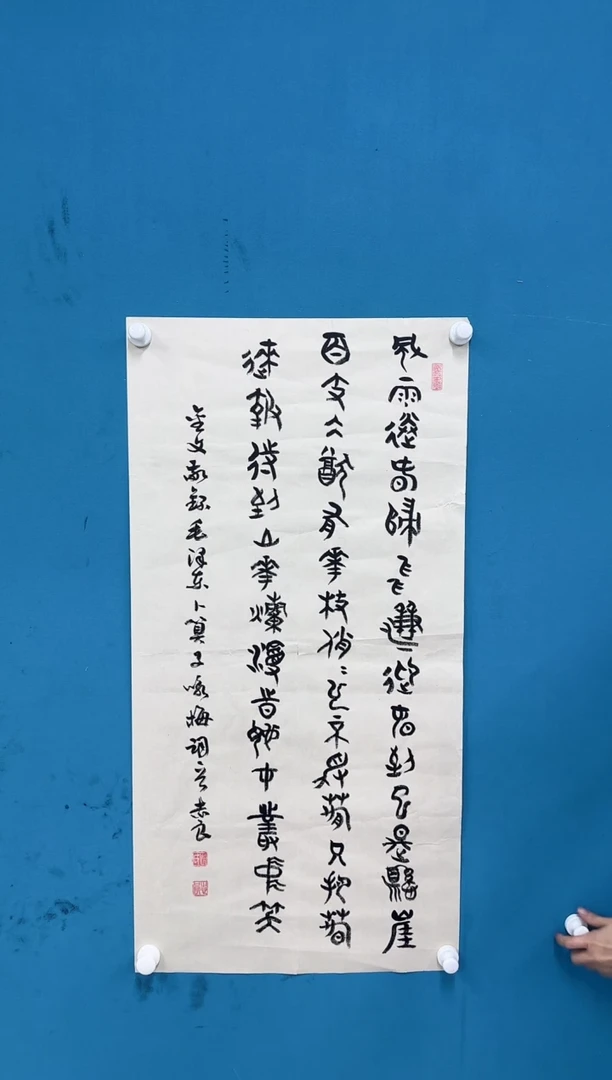 風雨送春歸飛雪迎春到已是懸崖
百丈冰猶有花枝俏俏也不爭春只把春
來報待到山花爛漫時她在叢中笑
金文敬錄毛泽东卜算子咏梅词志良